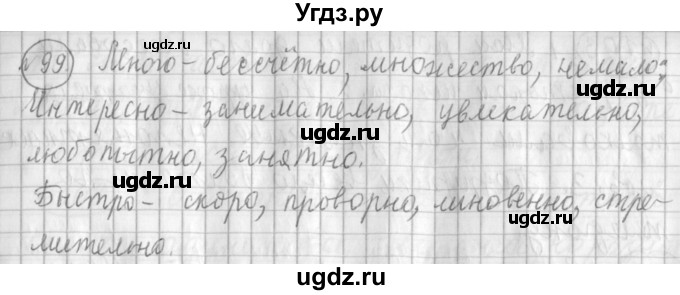 Угдз.ру
№ 99 Много – бессчётно, множество, немало;
Интересно – занимательно, увлекательно,
любопытно, занятно.
Быстро – скоро, проворно, мгновенно, стре-
мительно.
ugdz.ru
ugdz.ru
ugdz.ru
ugdz.ru
ugdz.ru
ugdz.ru
ugdz.ru
ugdz.ru
ugdz.ru